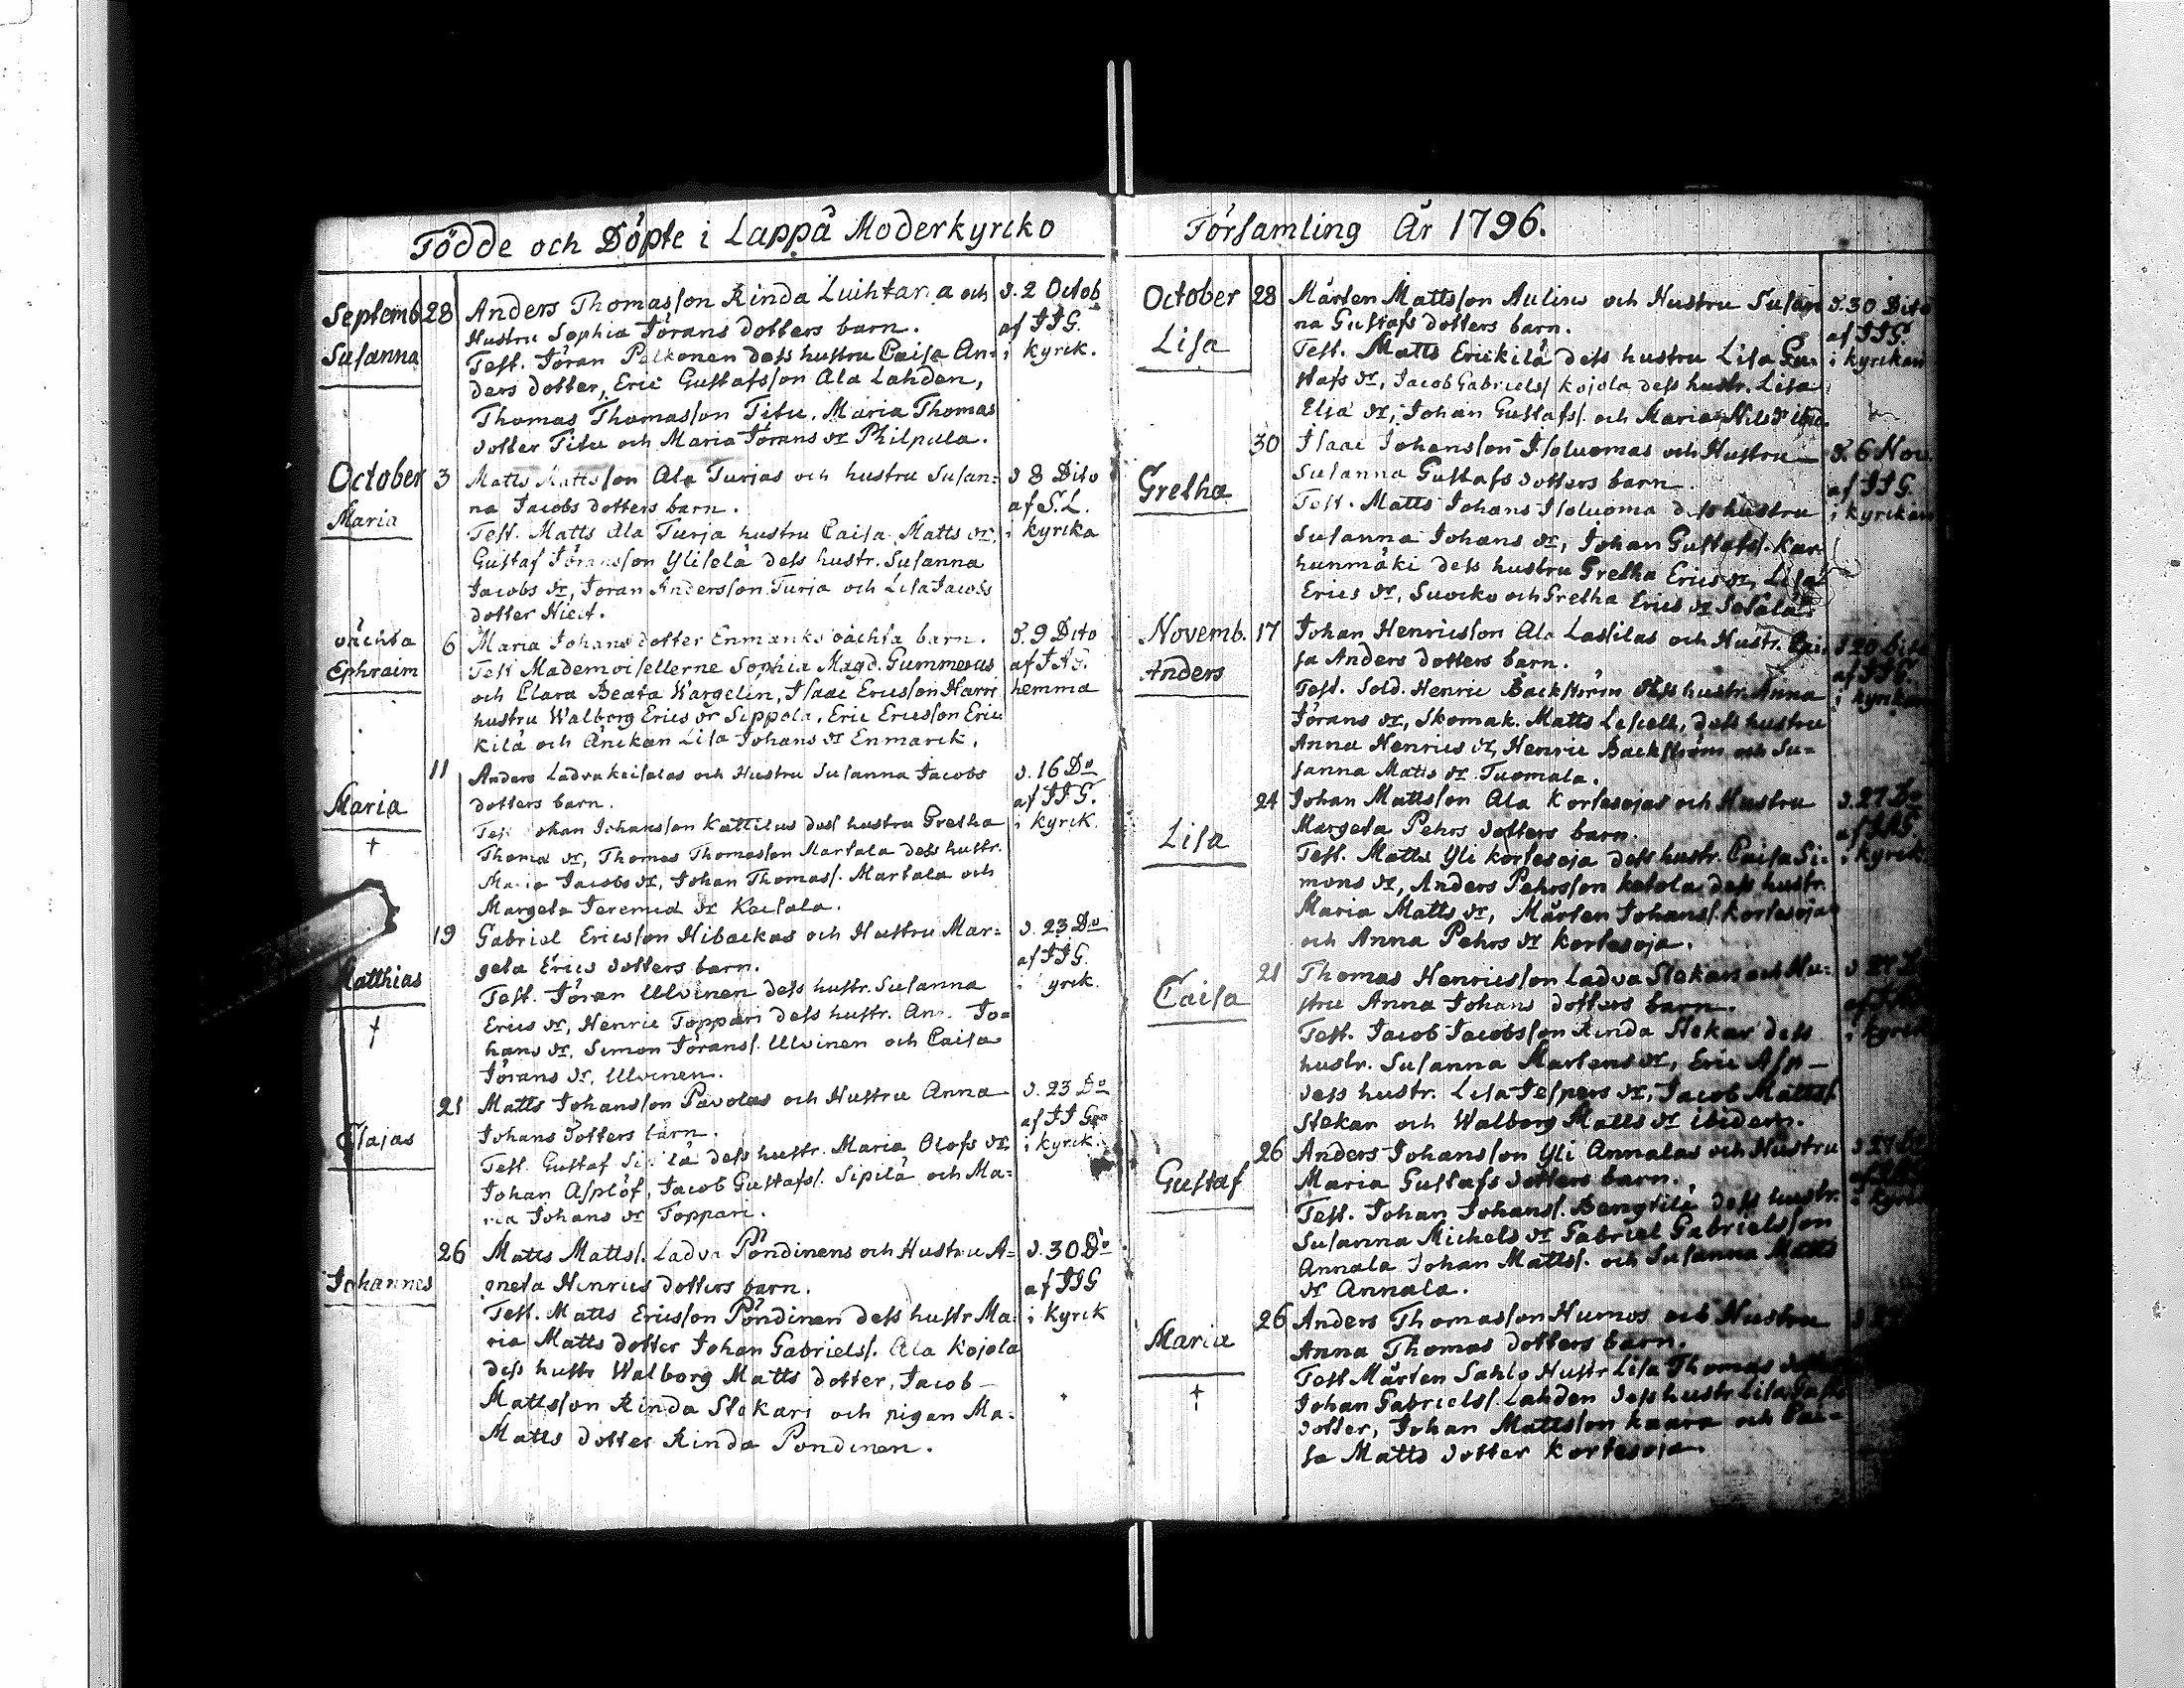 Födde och Döpte i Lappå Moderkyrcko
Septemb. 28 Anders Thomasson Rinda Luihtana och d. 2 Octob.
Hustru Sophia Jörans dotters barn. af JJG.
Susanna Test. Jöran Pelkonen dess hustru Caisa An= i kyrck.
ders dotter, Eric Gustafsson Ala Lahden,
Thomas Thomasson Titu, Maria Thomas
dotter Titu och Maria Jörans dr Philpula.
October 3 Matts Mattsson Ala Turjas och hustru Susan= d 8 Dito
na Jacobs dotters barn. af S.L.
Maria Test. Matts Ala Turja hustru Caisa Matts dr, i kyrcka
Gustaf Jöransson Yliselä dess hustr. Susanna
Jacobs dr, Jöran Andersson Turja och Lisa Jacobs
dotter Hiert.
oächta 6 Maria Johans dotter Enmarks oächta barn. d. 9 Dito
Ephraim Test Mademoisellerne Sophia Magd. Gummerus af JAG.
och Clara Beata Wargelin, Isaac Ericsson Harri hemma
hustru Walborg Erics dr Sippola, Eric Ericsson Eric
kilä och Änckan Lisa Johans dr Enmarck.
11 Anders Ladvakeisalas och Hustru Susanna Jacobs d. 16 Do
dotters barn. af JJG.
Maria Test Johan Johansson Kattilus dess hustru Gretha i kyrck.
† Thoma dr, Thomas Thomasson Martala dess hustr.
Maria Jacobs dr, Johan Thomass. Martala och
Margeta Jeremia dr Keisala.
19 Gabriel Ericsson Hibackas och Hustru Mar= d. 23 Do
geta Erics dotters barn. af JJG.
Matthias Test. Jöran Ulvinen dess hustr. Susanna i yrck.
† Erics dr, Henric Toppari dess hustr. An Jo=
hans dr, Simon Jörans. Ulvinen och Caisa
Jörans dr, Ulvinen.
21 Matts Johansson Pavolas och Hustru Anna d. 23 Do
Johans dotters barn. af JJG
Elajas Test. Gustaf Sipilä dess hustr. Maria Olofs dr i kyrck.
Johan Asplöf, Jacob Gustafss. Sipilä och Ma=
ria Johans dr Toppari.
26 Matts Matts. Ladva Pöndinens och Hustru A= d. 30 Do
gneta Henrics dotters barn. af JJG
Johannes Test. Matts Ericsson Pöndinen dess hustr Ma= i kyrck
ria Matts dotter Johan Gabrielss. Ala Kojola
dess hustr Walborg Matts dotter, Jacob
Mattsson Rinda Stekari och pigan Ma=
Matts dotter Rinda Pondinen.
Församling År 1796.
October 28 Mårten Mattsson Aulins och Hustru Susan d. 30 Dito
na Gustafs dotters barn. af JJG.
Lisa Test. Matts Erickilä dess hustru Lisa Gu= i kyrckan
stafs dr, Jacob Gabrielss. Kojola dess hustr. Lisa
Elia dr, Johan Gustafs. och Maria Nils dr
30 Isaac Johansson Isoluomas och Hustru d. 6 Nov.
Susanna Gustafs dotters barn. af JJG.
Gretha Test. Matts Johans Isoluoma dess hustru i kyrckan
Susanna Johans dr, Johan Gustafss. Kar
hunmäki dess hustru Gretha Erics dr, Lisa
Erics dr, Suocko och Gretha Erics dr
Novemb. 17 Johan Henricsson Ala Lassilas och Hustr. Cai= d 20 Dito
sa Anders dotters barn. af JJG.
Anders Test. Sold. Henric Backström dess hustr. Anna i kyrckan
Jörans dr, Skomak. Matts Lesell, dess hustru
Anna Henrics dr, Henric Backström och Su=
sanna Matts dr Tuomala.
24 Johan Mattsson Ala Kortesojas och Hustru d. 27 Do
Margeta Pehrs dotters barn. af JAG
Lisa Test. Matts Yli Kortesoja dess hustr. Caisa Si= i kyrck
mons dr, Anders Pehrsson Ketola dess hustr.
Maria Matts dr, Mårten Johans. Kortesoja
och Anna Pehrs dr Kortesoja.
21 Thomas Henricsson Ladva Stekars och Hu= d
Caisa stru Anna Johans dotters barn. af
Test. Jacob Jacobsson Rinda Stekar dess i kyrck
hustr. Susanna Martens dr, Eric Asp
dess hustr. Lisa Jespers dr, Jacob Matts.
Stekar och Walborg Matts dr ibidem.
26 Anders Johansson Yli Annalas och Hustru d 27
Gustaf Maria Gustafs dotters barn. af
Test. Johan Johans. Bengtilä dess hustr. i kyrck
Susanna Michels dr Gabriel Gabrielsson
Annala Johan Matts. och Susanna Matts
dr Annala.
26 Anders Thomasson Humos och Hustru d
Maria Anna Thomas dotters barn.
Test Mårten Sahlo Hustr Lisa Thomas
† Johan Gabrielss. Lahden dess hustr Lisa
dotter, Johan Mattsson Kaara och Cai=
sa Matts dotter Kortesoja.